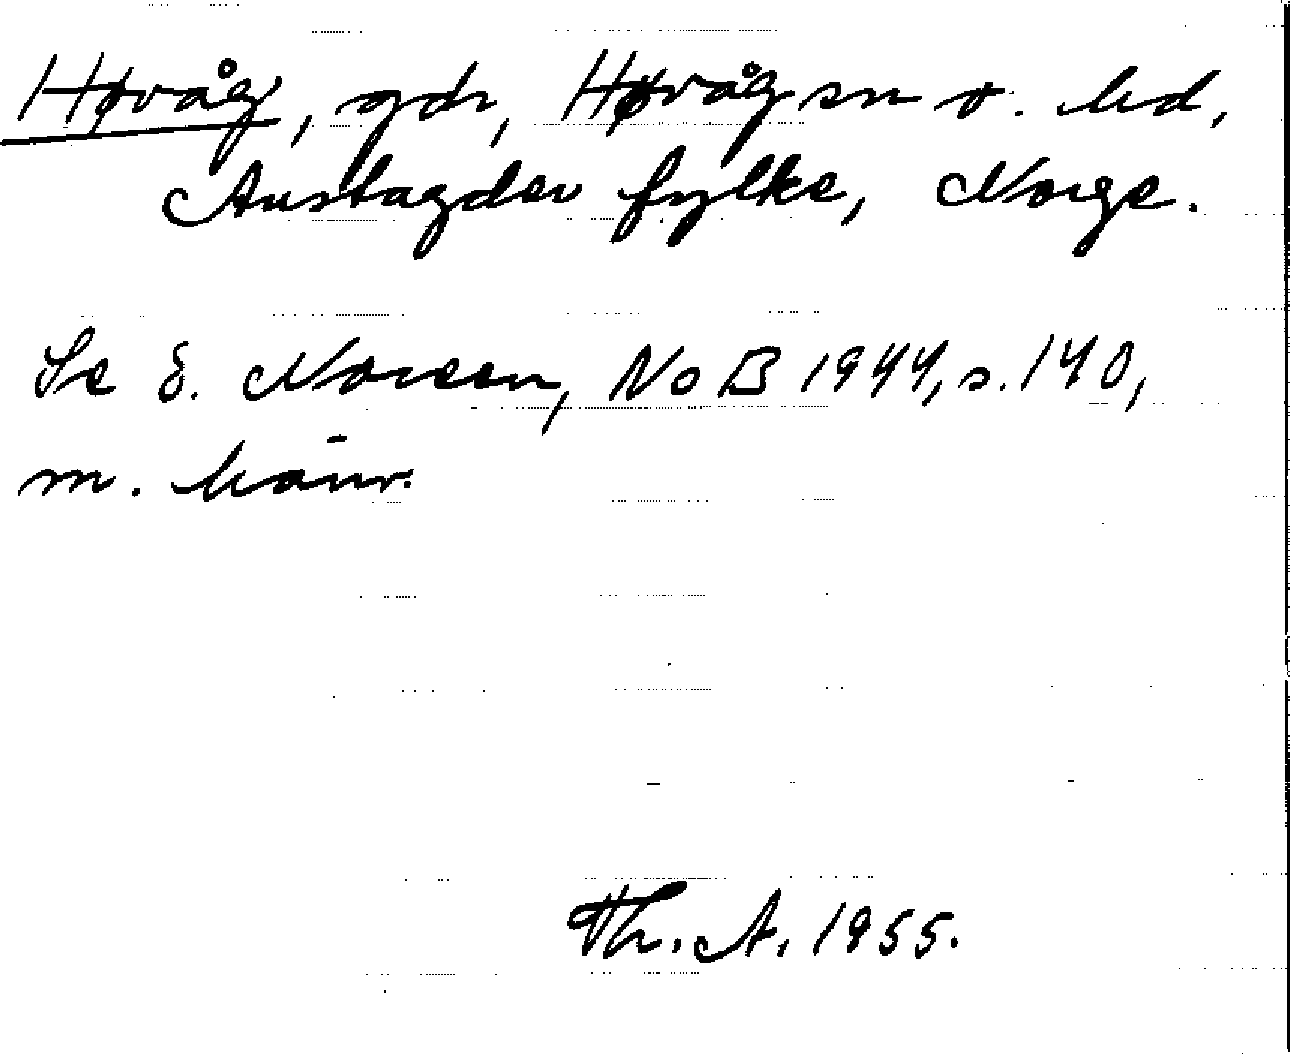 Høvåg, gdr, Høvåg sn o. hd,
Austagder fylke, Norge.
Se E. Noreen, NoB 1944, s. 140,
m. hänv.
Th. A. 1955.